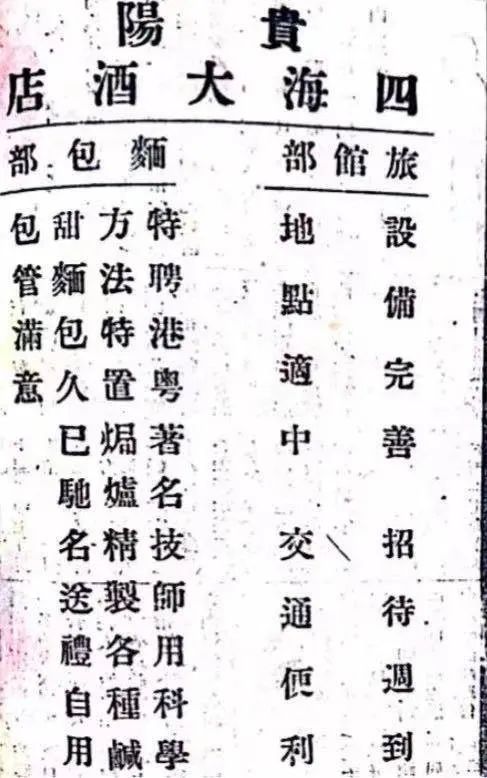 貴陽
四海大酒店
旅館部
設備完善招待週到
地點適中交通便利
麵包部
特聘港粵著名技師用科學
方法特置焗爐精製各種鹹
甜麵包久已馳名送禮自用
包管滿意